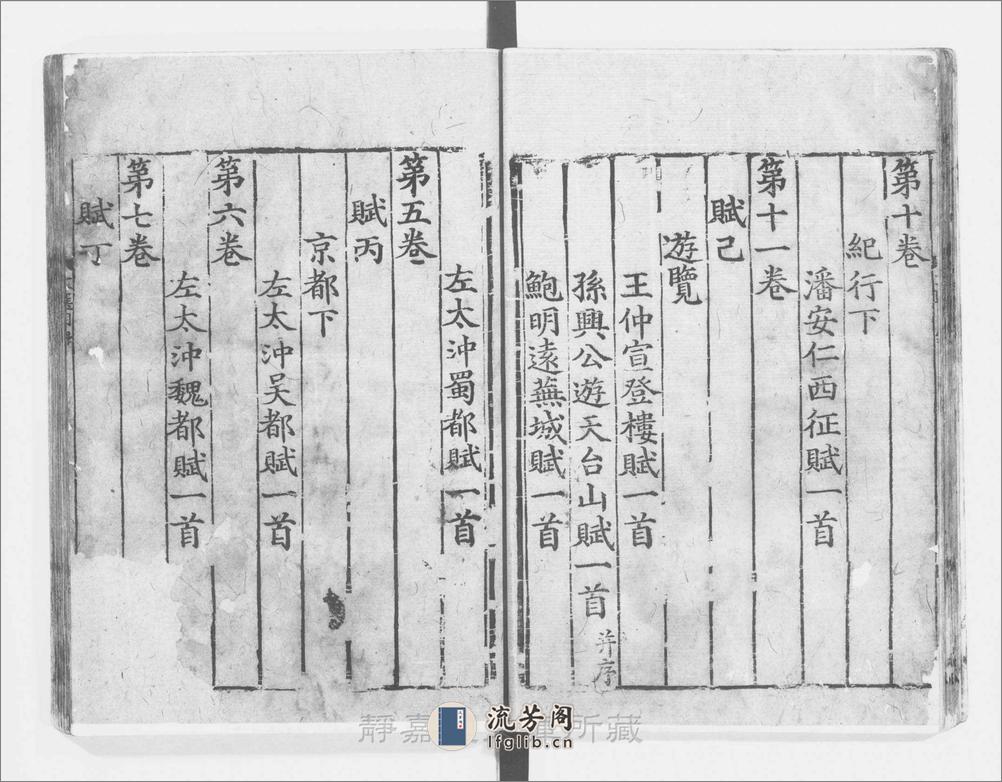 第十卷
紀行下
潘安仁西征賦一首
第十一卷
賦己
遊覽
王仲宣登樓賦一首
孫興公遊天台山賦一首并序
鮑明遠蕪城賦一首
左太沖蜀都賦一首
第五卷
賦丙
京都下
左太沖吳都賦一首
第六卷
左太沖魏都賦一首
第七卷
賦丁
靜嘉 所藏
流芳阁
lfglib.cn